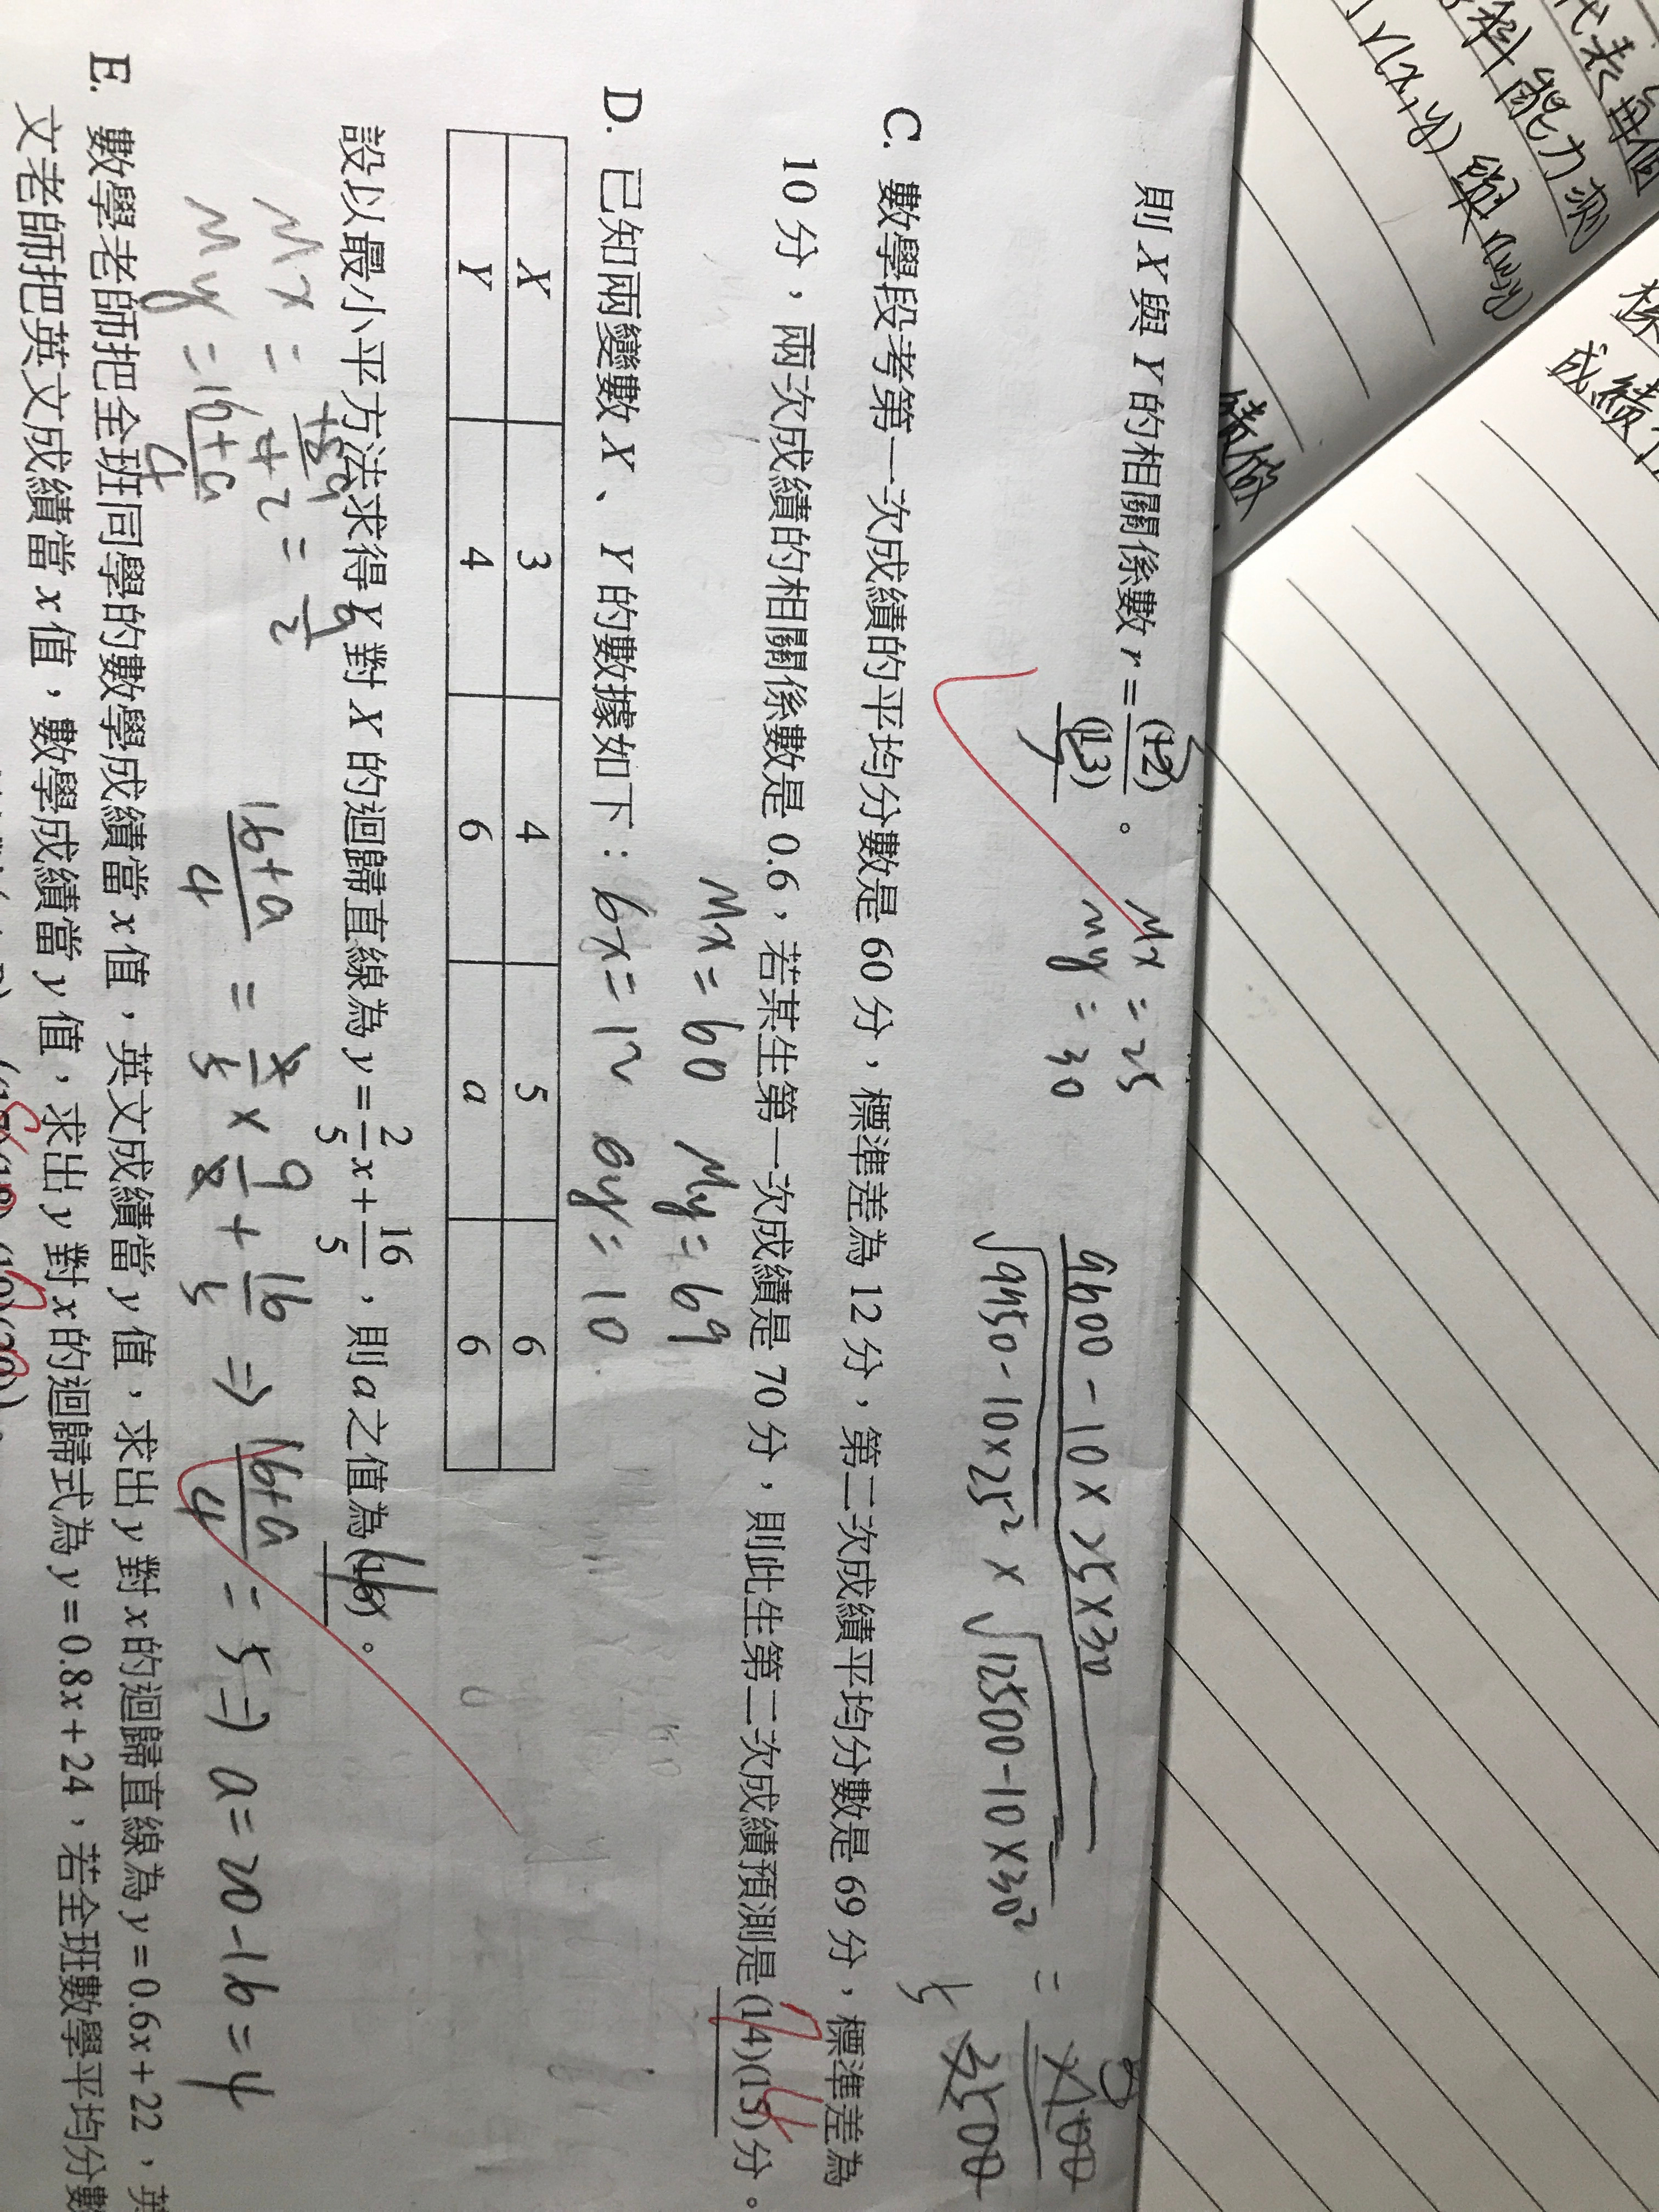 則 X 與 Y 的相關係數 r = (12)/(13)。
μx = 25
μy = 30
9400 - 10 × 25 × 30
√12500 - 10 × 30²
C. 數學段考第一次成績的平均分數是 60 分，標準差為 12 分，第二次成績平均分數是 69 分，標準差為
10 分，兩次成績的相關係數是 0.6，若某生第一次成績是 70 分，則此生第二次成績預測是 (14)(15) 分。
μx = 60 μy = 69
6x = 12 6y = 10
D. 已知兩變數 X、Y 的數據如下：
X 3 4 5 6
Y 4 6 a 6
設以最小平方法求得 Y 對 X 的迴歸直線為 y = 2/5 x + 16/5，則 a 之值為 (16)。
μx = 18/4 = 9/2
μy = 16+a/4
16+a/4 = 2/5 × 9/2 + 16/5 ⇒ 16+a/4 = 5 ⇒ a = 20 - 16 = 4
E. 數學老師把全班同學的數學成績當 x 值，英文成績當 y 值，求出 y 對 x 的迴歸直線為 y = 0.6x + 22，英
文老師把英文成績當 x 值，數學成績當 y 值，求出 y 對 x 的迴歸式為 y = 0.8x + 24，若全班數學平均分數